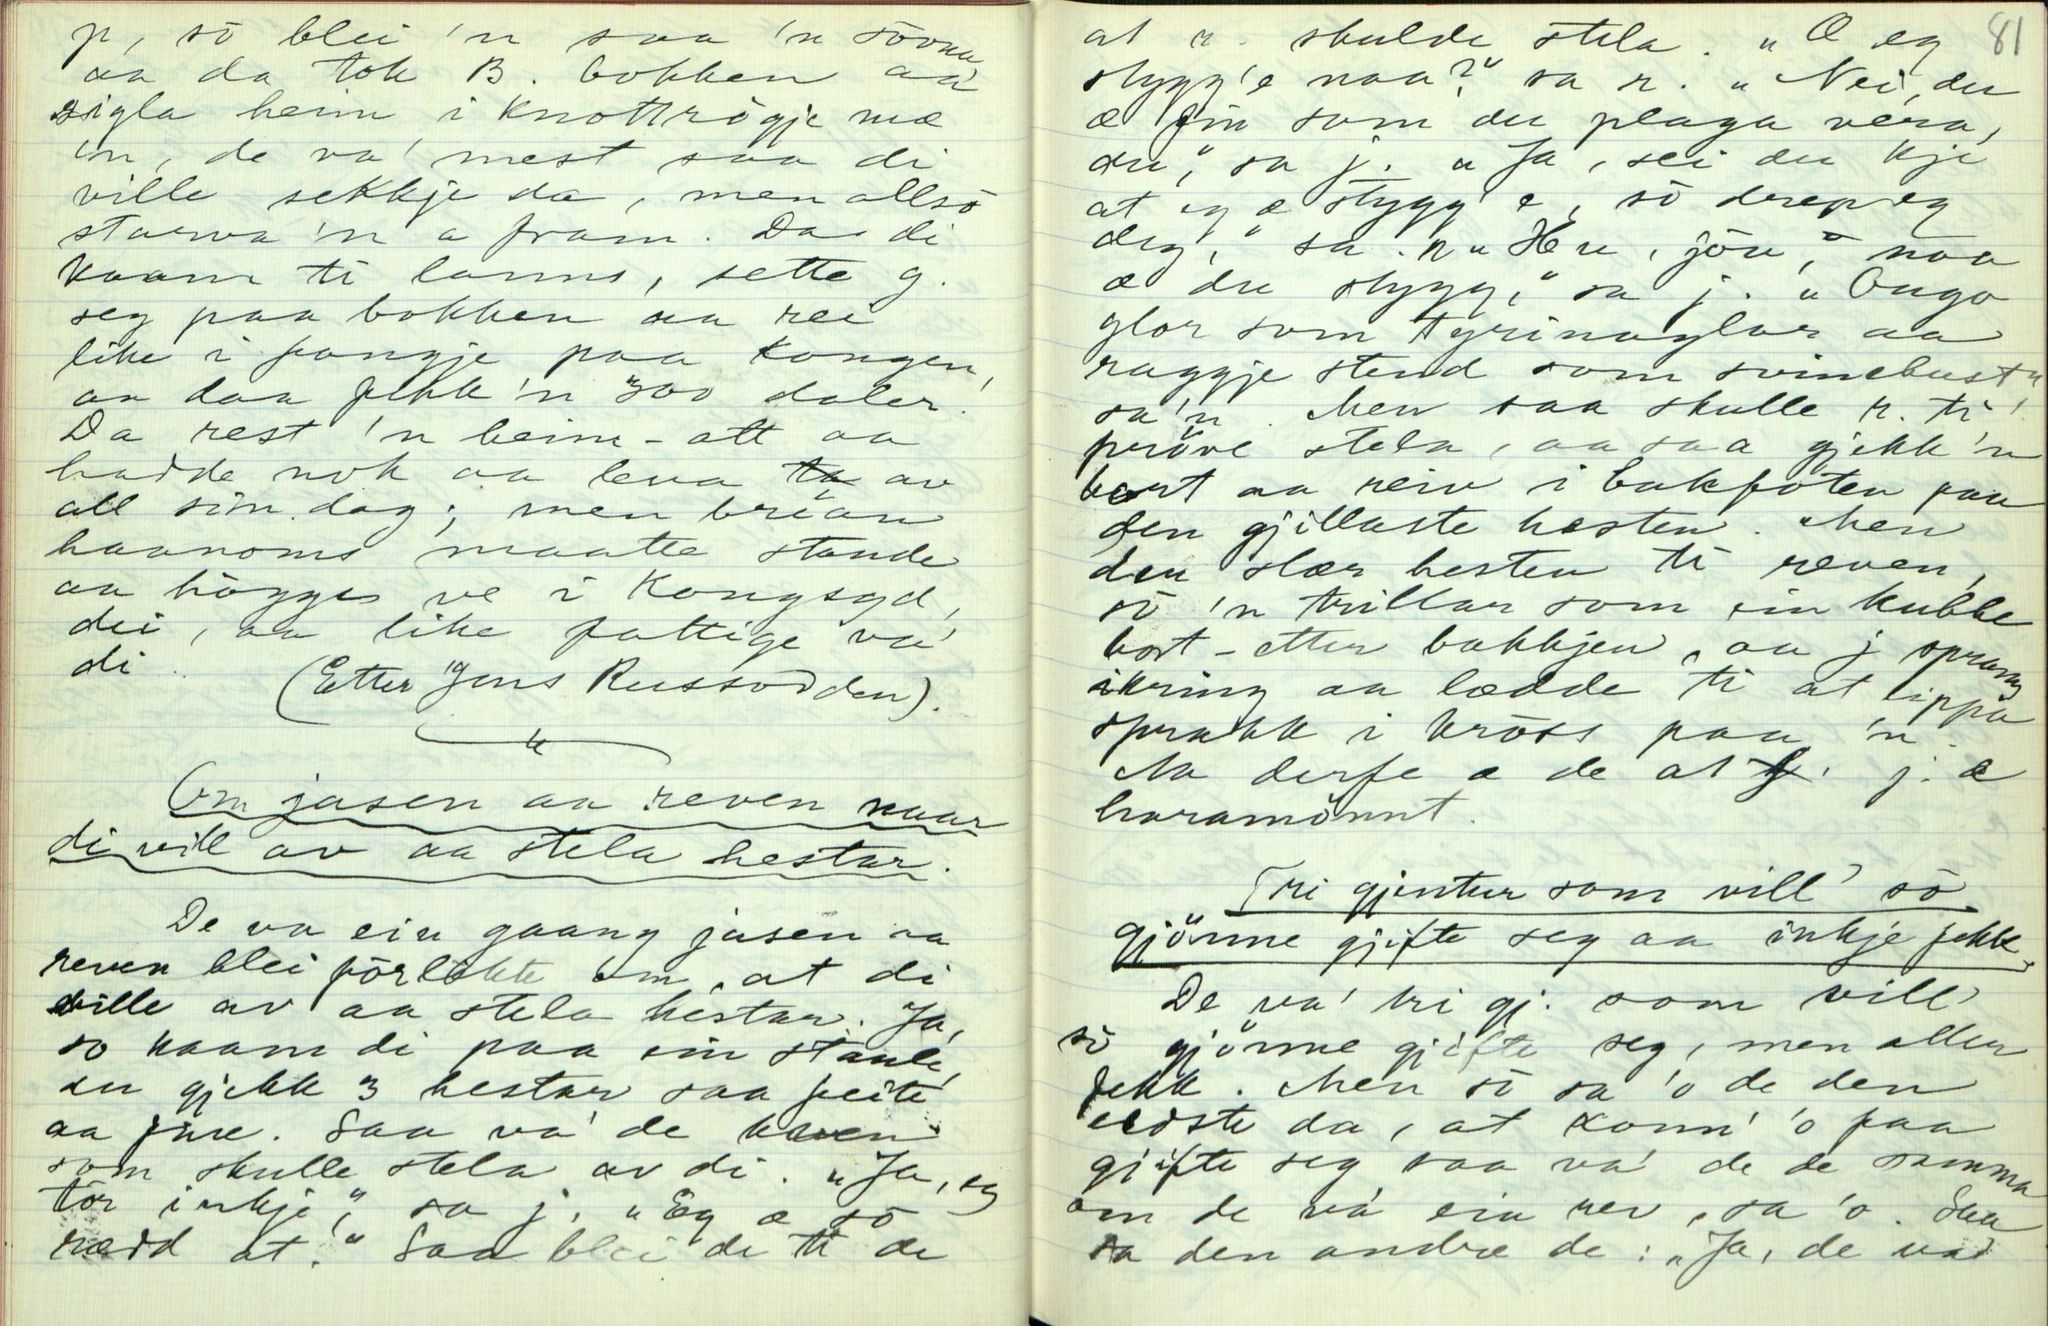 p, sö blei 'n saa 'n sovna
aa da tok B. bokken aa
sigla heim i knottrögje mæ
'n, de va' mest saa di
ville sekkje da, men allsö
starva 'n a fram. Da di
kaam ti lanns, sette g.
seg paa bokken aa rei
like i fangje paa kongen,
aa daa fekk 'n 300 daler.
Da reist 'n heim-att aa
hadde nok aa leva av
all sin dag; men brörane
haanoms maatte stande
aa högge ve i Kongsgd,
dei, aa like fattige va'
di.
(Etter Jens Russodden).
Om jasen aa reven naar
di vill av aa stela hestar.
De va ein gaang jasen aa
reven blei förlikte om, at di
ville av aa stela hestar. Ja,
so kaam di paa ein staule,
en gjekk 3 hestar saa feite
aa fine. Saa va' de kven
som skulle stela av di. "Ja, eg
tör inkje," sa j. "Eg æ sö
rædd at." Saa blei de ti de
81
at r. skulde stela. "Æ eg
stygg'e naa?" sa r. "Nei, du
æ fin som du plaga vera,
du," sa j. "Ja, sei du kje
at eg æ stygg'e, sö drep eg
deg," sa r. "Hu, jöu, naa
æ du stygg," sa j. "Ougo
glor som tyrinaglar aa
raggje stend som svinebust",
sa'n. Men saa skulle r. ti
pröve stela, aa saa gjekk 'n
bort aa reiv i bakfoten paa
den gjillaste hesten. Men
den slær hesten ti reven,
sö 'n trillar som ein kubbe
bort-etter bakkjen, aa j sprang
ikring aa lædde ti at lippa
sprakk i kröss paa 'n.
Aa derfe æ de at j. æ
haramönnt.
Tri gjentur som vill' sö
gjönne gjifte seg aa inkje fekk.
De va' tri gj. som vill'
sö gjönne gjifte seg, men allr
fekk. Men sö sa 'o de den
eldste da, at konn' 'o faa
gjifte seg saa va' de de samma
om de va' ein rev, sa 'o. Saa
sa den andre de: "Ja, de va'